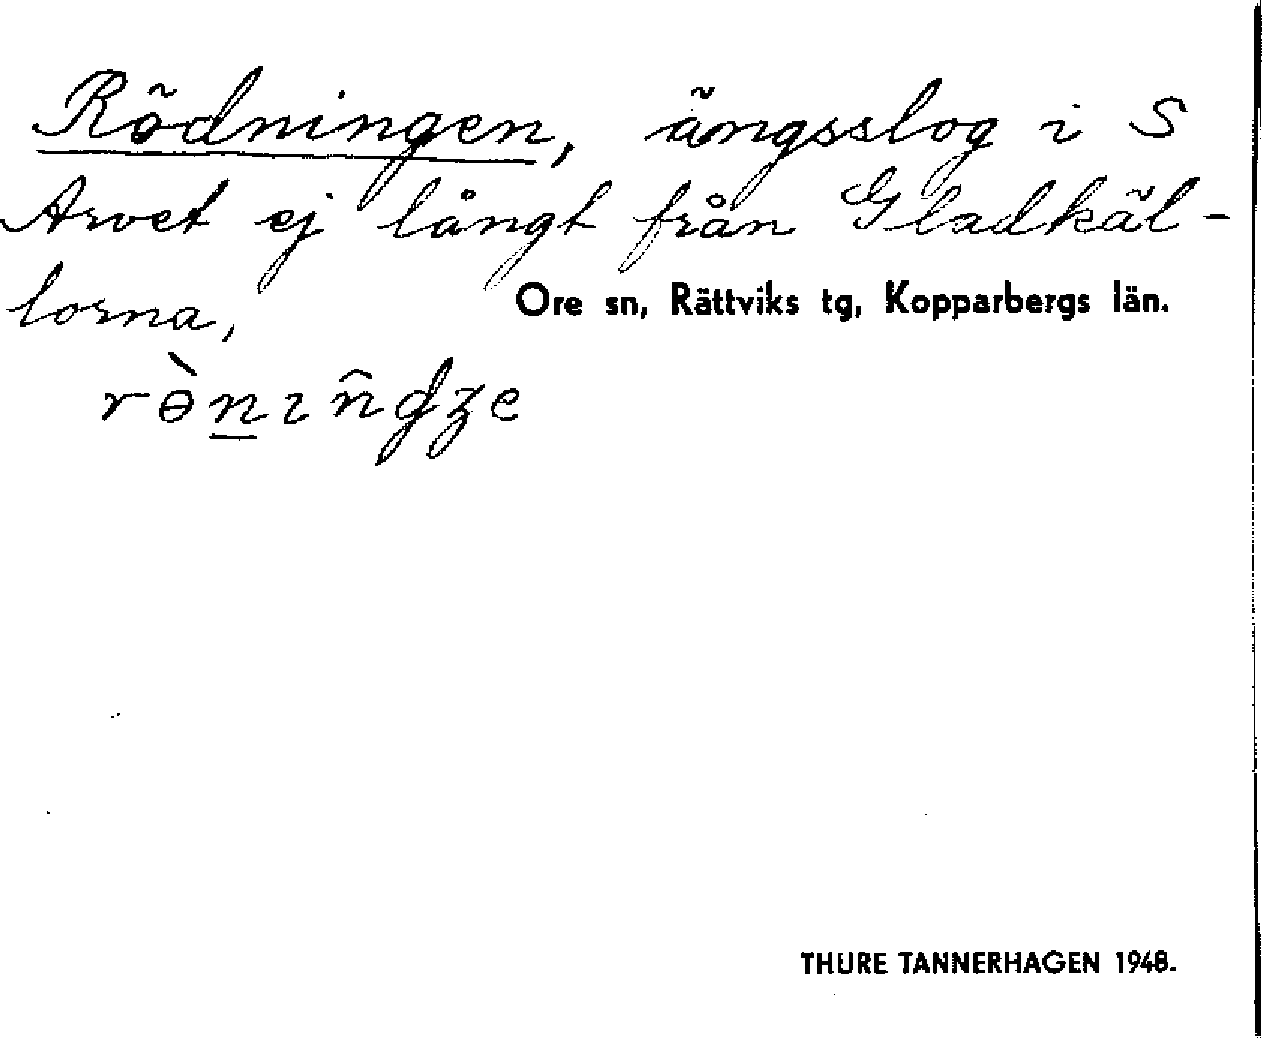 Rödningen, ängsslog i S
Arvet ej långt från Gladkäl-
lorna,
Ore sn, Rättviks tg, Kopparbergs län.
THURE TANNERHAGEN 1948.